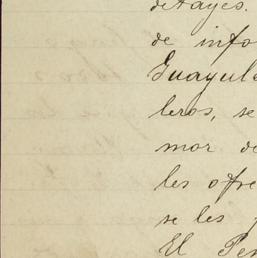 detayes.
de info
Guayule
leros, se
mor de
les ofre
se les
El Per